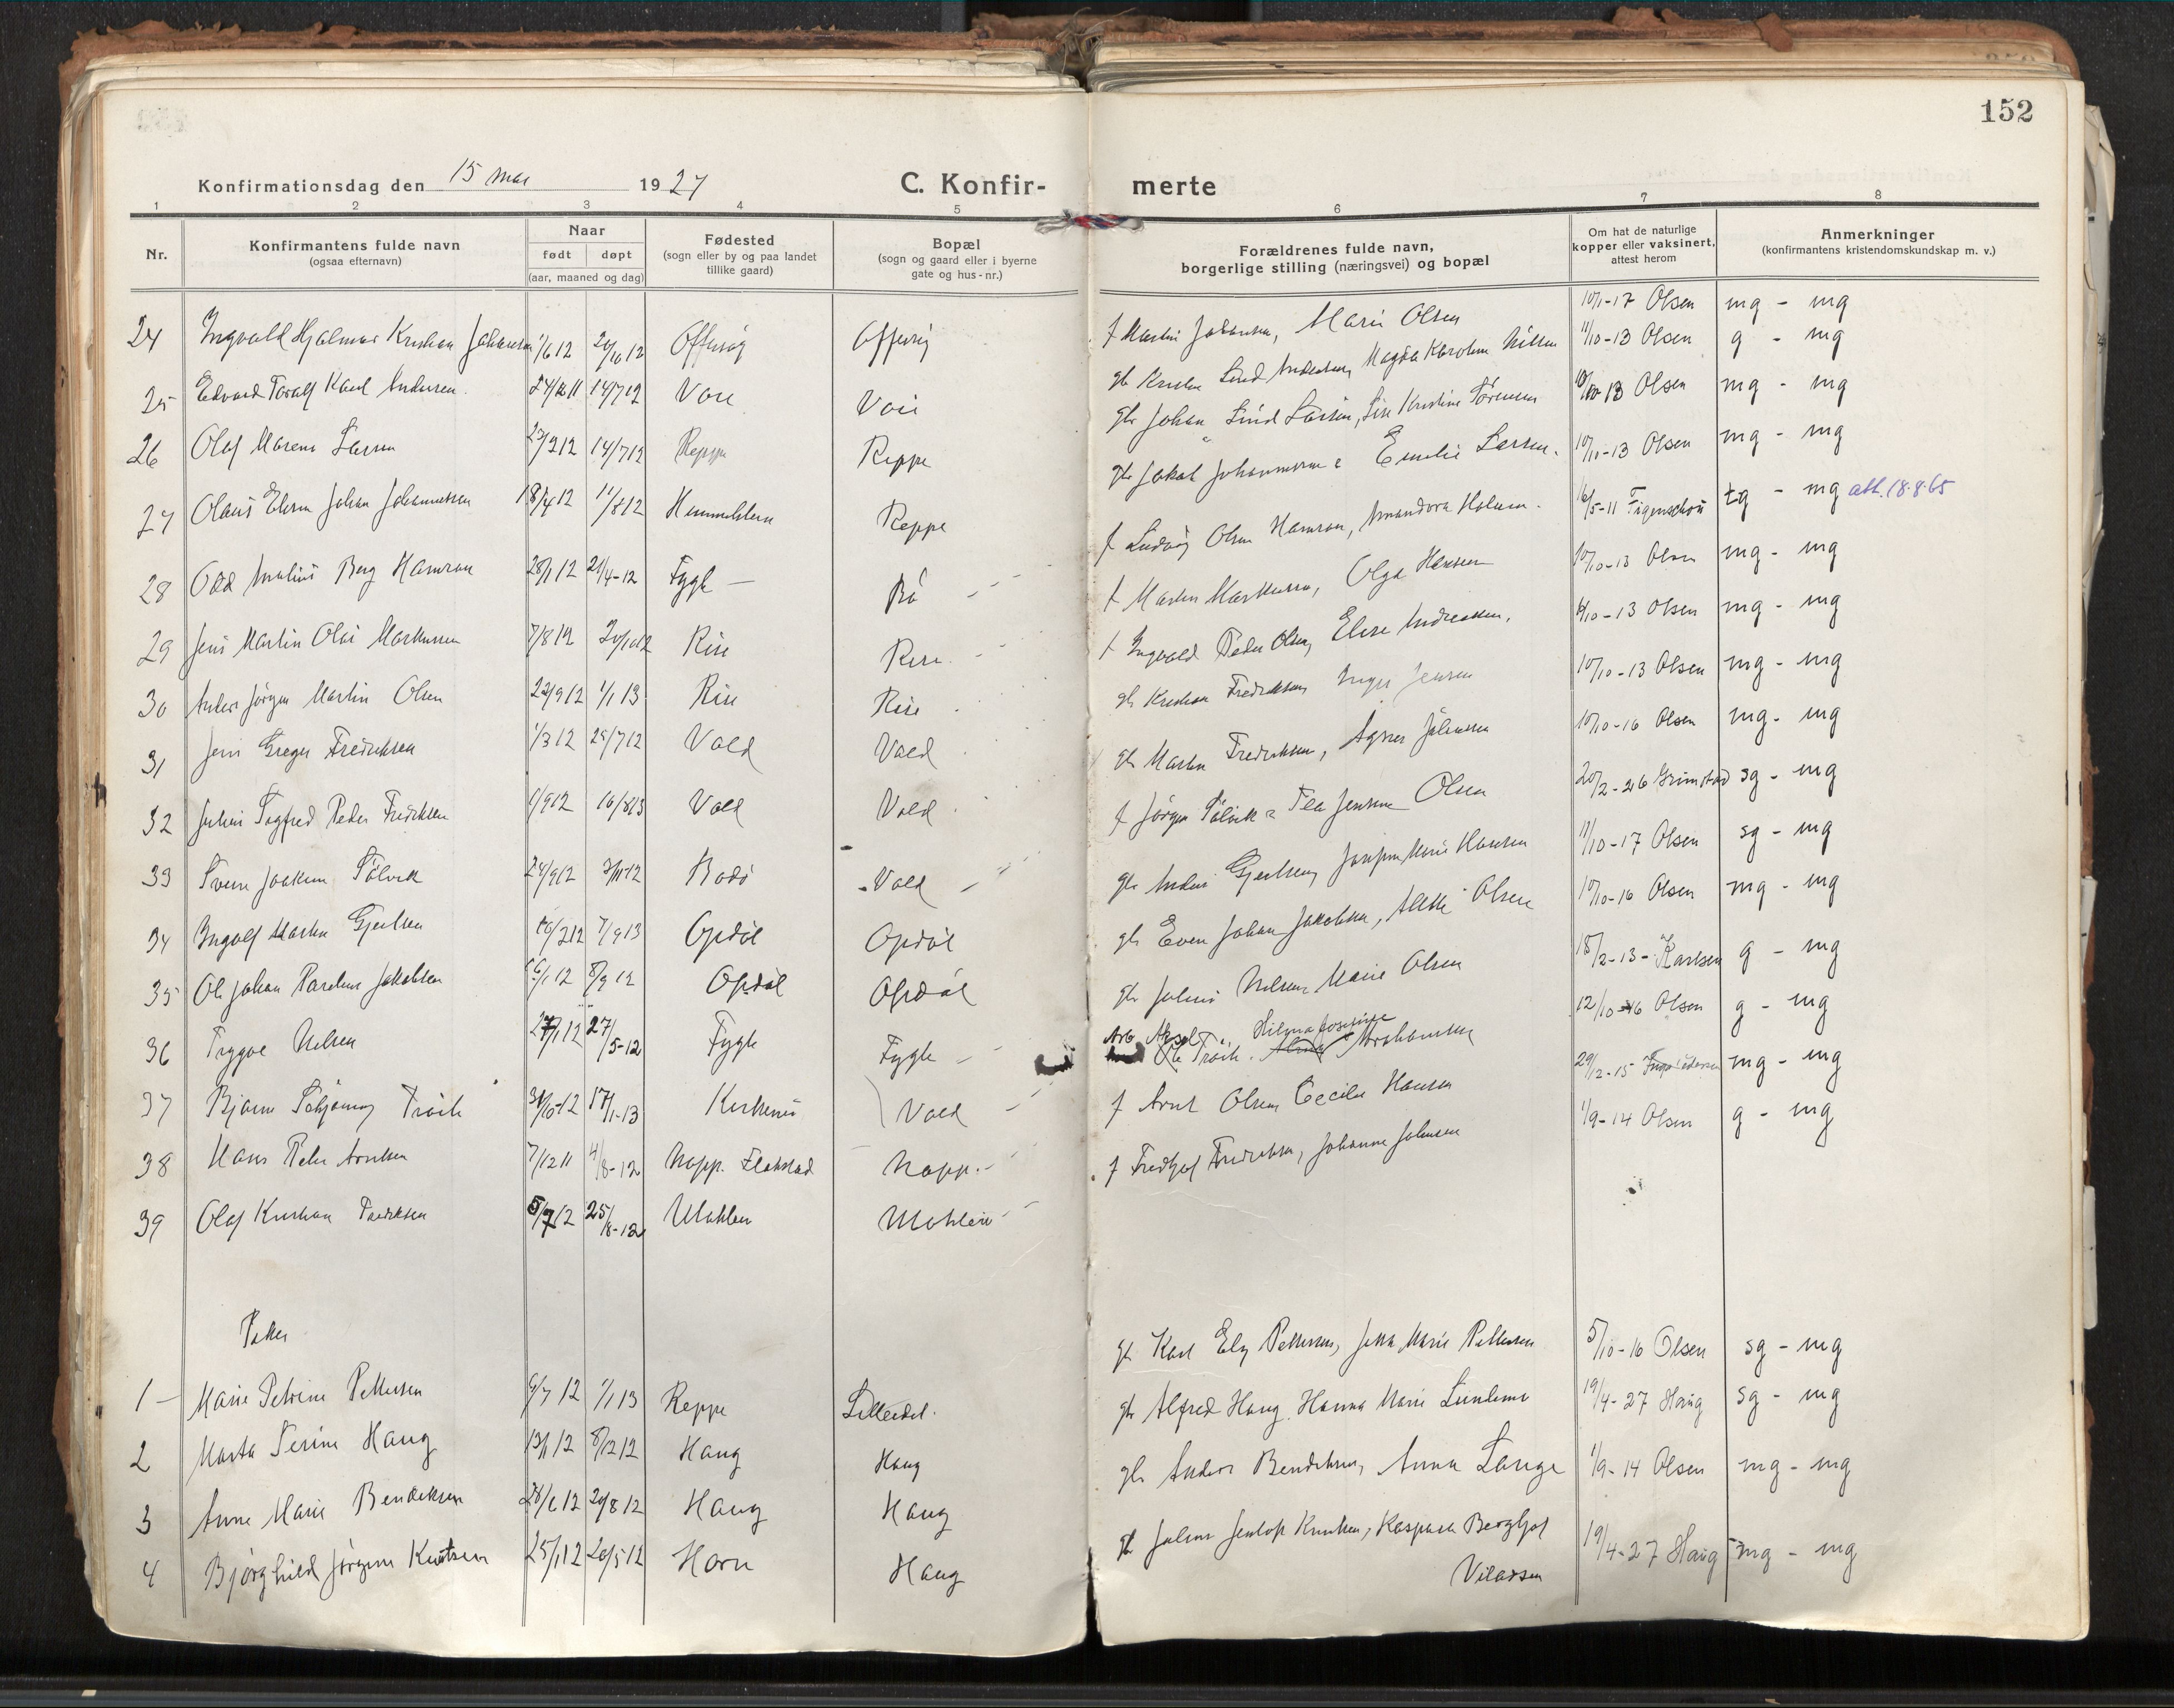 152
Konfirmationsdag den 15 mai 1927 C. Konfir- merte
1 2 3 4 5 6 7 8
Nr.
Konfirmantens fulde navn
(ogsaa efternavn)
Naar
født døpt
(aar, maaned og dag)
Fødested
(sogn eller by og paa landet
tillike gaard)
Bopæl
(sogn og gaard eller i byerne
gate og hus-nr.)
Forældrenes fulde navn,
borgerlige stilling (næringsvei) og bopæl
Om hat de naturlige
kopper eller vaksinert,
attest herom
Anmerkninger
(konfirmantens kristendomskundskap m. v.)
24 Ingvald Hjalmar Kristian Johansen 1/6 12 20/10 12 Offersøy Offersøy f Martin Johansen, Marie Olsen 10/1-17 Olsen mg - mg
25 Edvard Toralf Karl Andersen 14/7 12 Voie Voie gb Kristen Lind Andersen, Magda Karoline Nilsen 11/10-13 Olsen g - mg
26 Olaf Marens Larsen 23/2 12 14/7 12 Reppe Reppe gb Johan Lind Larsen, Lise Kristine Sørensen 13 Olsen mg - mg
27 Olaus Johan Johannessen 18/4 12 11/8 12 Reppe gb Jakob Johannessen Emelie Larsen 10/11-13 Olsen mg - mg
28 Odd Berg Hamran 28/1 12 21/4-12 Fygle Bø f Ludvig Olsen Hamran, 16/5-11 Figenschou tg - mg att. 18.8.65
29 Jens Martin Olai Markussen 7/8 12 20/10 12 Rise Rise f Martin Markussen, Olga Hansen 10/10-13 Olsen mg - mg
30 Anders Jørgen Martin Olsen 22/9 12 1/1 13 Rise Rise f Ingvald Peder Olsen, Elise Andreassen 10-13 Olsen mg - mg
31 Jens Greger Fredriksen 1/3 12 7 12 Vold Vold gb Kristian Fredriksen Inger Jensen 10/10-13 Olsen mg - mg
32 Julius Sigfred Peder Fredriksen 1/9 12 10/8 13 Vold Vold gb Martin Fredriksen, Agnes Johansen 10/10-16 Olsen mg - mg
33 Svein Joakim Sølvik 24/9 12 3/11-12 Bodø Vold f Jørgen Sølvik Tea Jensine Olsen 20/2-26 Grimstad sg - mg
34 Ingolf Martin Gjertsen 7/9 13 Opdøl Opdøl gb Anders Gjertsen, Josefine Marie Hansen 11/10-17 Olsen sg - mg
35 Ole Johan Jakobsen 8/9 12 Opdøl Opdøl gb Even Johan Jakobsen, Alette Olsen 10/10-16 Olsen mg - mg
36 Trygve Nilsen 27/1 12 27/5-12 Fygle Fygle gb Julius Nilsen Marie Olsen 18/2-13 - Karlsen g - mg
37 Bjarne Schjønning Trøite 31/10-12 17/1-13 Kirkenes Vold Arb Aksel Ole Trøite. Hilma Josefine Abrahamsen 12/10-16 Olsen g - mg
38 Hans Peder Arntsen 7/12 11 4/8-12 Napp. Flakstad Napp. f Arnt Olsen Cecilie Hansen 29/2-15 mg - mg
39 Olaf Kristian Fredriksen 5/7 12 25/8-12 Mohlen Mohlen f Fredtjof Fredriksen, Johanne Johnsen 1/9-14 Olsen g - mg
Piker
1 Marie Petrine Pettersen 6/7 12 1/1 13 Reppe Lilleeidet. gb Karl Ely Pettersen, Marie Pettersen 5/10-16 Olsen sg - mg
2 Marta Serine Haug 13/1 12 8/12 12 Haug Haug gb Alfred Haug. Hanna Marie 19/4-27 Haug sg - mg
3 Anne Marie Bendiksen 28/6 12 20/8 12 Haug Haug gb Anders Bendiksen, Anna Lange 1/9-14 Olsen mg - mg
4 Bjørghild Jørgine Knutsen 25/1 12 20/5 12 Horn Haug gb Knutsen, Kaspara Bergljot Vilassen 19/4-27 Haug mg - mg